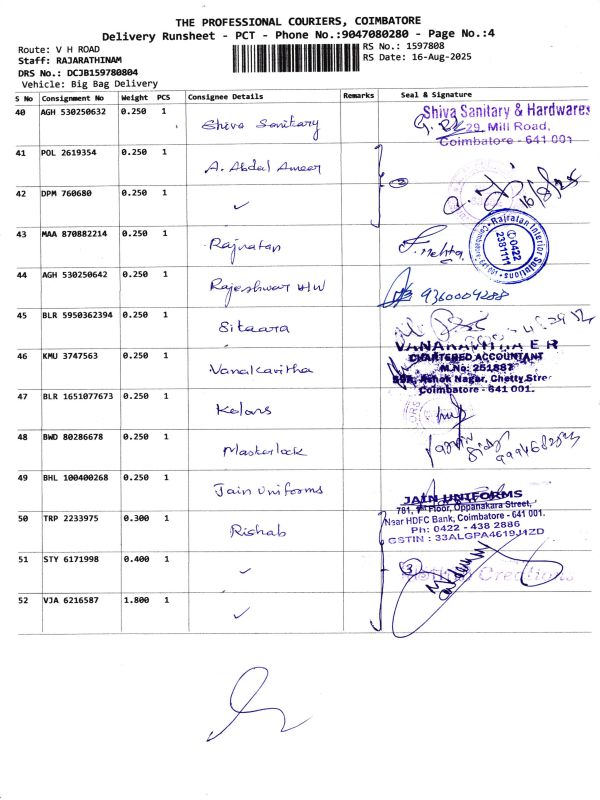 THE PROFESSIONAL COURIERS, COIMBATORE
Delivery Runsheet - PCT - Phone No.:9047080280 - Page No.:4
Route: V H ROAD
RS No.: 1597808
Staff: RAJARATHINAM
RS Date: 16-Aug-2025
DRS No.: DCJB159780804
Vehicle: Big Bag Delivery
S No Consignment No. Weight PCS Consignee Details Remarks Seal & Signature
40 AGH 530250632 0.250 1 Shiva Sanitary
Shiva Sanitary & Hardwares
29, Mill Road,
Coimbatore - 641 001
41 POL 2619354 0.250 1 A. Abdal Ameer
2
42 DPM 760680 0.250 1 ✓
16/8/25
43 MAA 870882214 0.250 1 Rajratan
F. mehta
Rajratan Interior Solutions
0422
2381111
44 AGH 530250642 0.250 1 Rajeshwar H/W
9360009288
45 BLR 5950362394 0.250 1 Sitaara
46 KMU 3747563 0.250 1 Vanalkavitha
CHARTERED ACCOUNTANT
M.No: 251887
Ashok Nagar, Chetty Stre
Coimbatore - 641 001
47 BLR 1651077673 0.250 1 Kolors
48 BWD 80286678 0.250 1 Masterlock
49 BHL 100400268 0.250 1 Jain Uniforms
JAIN UNIFORMS
781, 1st Floor, Oppanakara Street,
Near HDFC Bank, Coimbatore - 641 001.
Ph: 0422 - 438 2886
GSTIN : 33ALGPA4619J1ZD
50 TRP 2233975 0.300 1 Rishab
51 STY 6171998 0.400 1 ✓
3
Creations
52 VJA 6216587 1.800 1 ✓